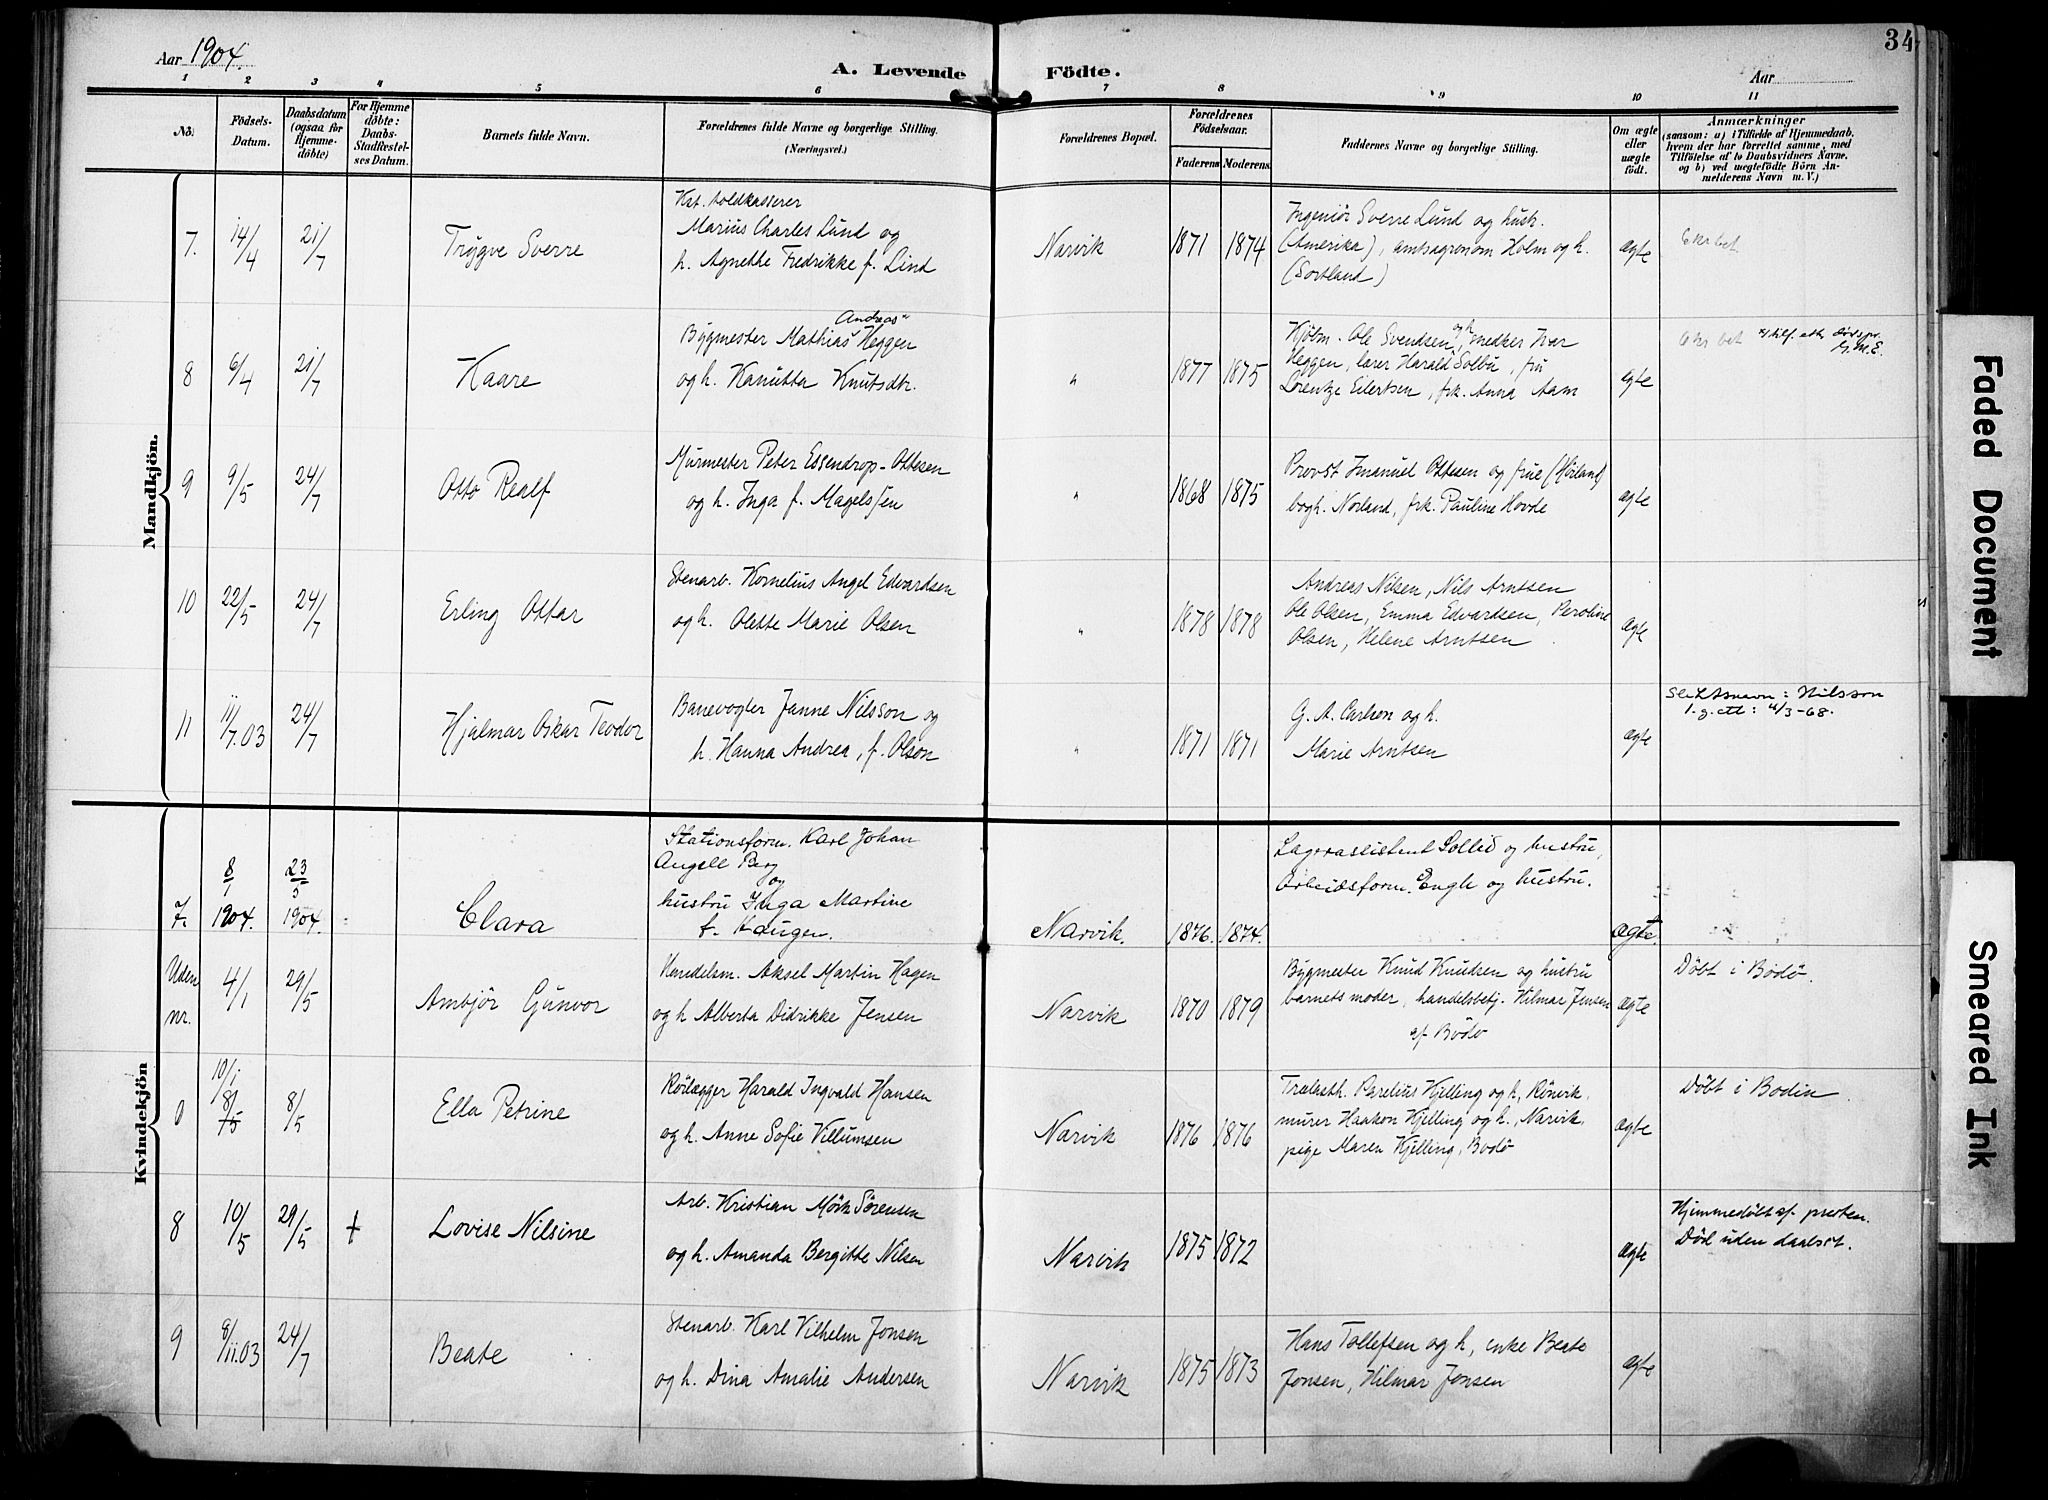 Aar 1904.
A. Levende Födte.
34
Aar
1 2 3 4 5 6 7 8 9 10 11
No.
Födsels-
Datum.
Daabsdatum
(ogsaa for
Hjemme-
døbte)
For Hjemme
døbte:
Daabs-
Stadfæstel-
ses Datum.
Barnets fulde Navn.
Forældrenes fulde Navne og borgerlige Stilling.
(Næringsvei.)
Forældrenes Bopæl.
Forældrenes
Födselsaar.
Faderens Moderens
Faddernes Navne og borgerlige Stilling.
Om ægte
eller
uægte
födt.
Anmærkninger
(saasom: a) i Tilfælde af Hjemmedaab,
hvem der har forrettet samme, med
Tilföielse af to Daabsvidners Navne,
og b) ved uægtefödte Börn An-
melderens Navn m. V.)
Mandkjön.
7. 14/4 21/7
Trygve Sverre
Marius Charles Lund og
h. Agnethe Fredrikke f. Lind
Narvik 1871 1874
Ingeniör Sverre Lund og hustr.
(Amerika), amtsagronom Holm og h.
(Sortland)
ægte
6 kr bet.
8 6/4 21/7
Kaare
Andreas
Bygmester Mathias Heggen
og h. Kanutta Knutsdtr.
" 1877 1875
Kjøbm. Ole Svendsen og h, smedker Ivar
Heggen, lærer Harald Solbu, fru
Lorentze Eilertsen, frk. Anna Aam
ægte
6 kr bet
9 9/5 24/7
Otto Realf
Murmester Peter Essendrop-Ottesen
og h. Inga f. Magelssen
" 1868 1875
Provst Imanuel Ottesen og frue (Høiland)
bogh. Norland, frk. Pauline Hovde
ægte
10 22/5 24/7
Erling Ottar
Stenarb. Kornelius Angel Edvardsen
og h. Olette Marie Olsen
" 1878 1878
Andreas Nilsen, Nils Arntsen
Ole Olsen, Emma Edvardsen, Peroline
Olsen, Helene Arntsen
ægte
11 11/7.03 24/7
Hjalmar Oskar Teodor
Banevogter Janne Nilsson og
h. Hanna Andrea, f. Olson
" 1871 1871
G. A. Carlson og h.
Marie Arntsen
ægte
Slektsnavn: Nilsson
l. g. att: 4/3-68.
Kvindekjön
7. 8/1 1904. 23/5 1904.
Clara
Stationsform. Karl Johan
Angell Berg
og
hustru Inga Martine
f. Haugen.
Narvik. 1876. 1874.
Lagerassistent Sollid og hustru,
Arbeidsform. Engh og hustru.
ægte.
Uden
nr.
4/1 29/5
Ambjör Gunvor
Handelsm. Aksel Martin Hagen
og h Alberta Didrikke Jensen
Narvik 1870 1879
Bygmester Knud Knudsen og hustru
barnets moder, handelsbetj. Hilmar Jensen
af Bodö
ægte
Döbt i Bodö.
0 10/1 8/5 8/5
Ella Petrine
Rörlægger Harald Ingvald Hansen
og h. Anne Sofie Villumsen
Narvik 1876 1876
Trælasth. Parelius Kjelling og h, Rönvik,
murer Haakon Kjelling og h., Narvik,
pige Maren Kjelling, Bodö
ægte
Döbt i Bodin
8 10/5 29/5 +
Lovise Nilsine
Arb. Kristian Mörk Sörensen
og h. Amanda Bergitte Nilsen
Narvik 1875 1872
ægte
Hjemmedöbt af presten.
Död uden daabsst.
9 8/11.03 24/7
Beate
Stenarb. Karl Vilhelm Jonsen
og h. Dina Amalie Andersen
Narvik 1875 1873
Hans Tollefsen og h, enke Beate
Jonsen, Hilmar Jonsen
ægte
Faded Document
Smeared Ink